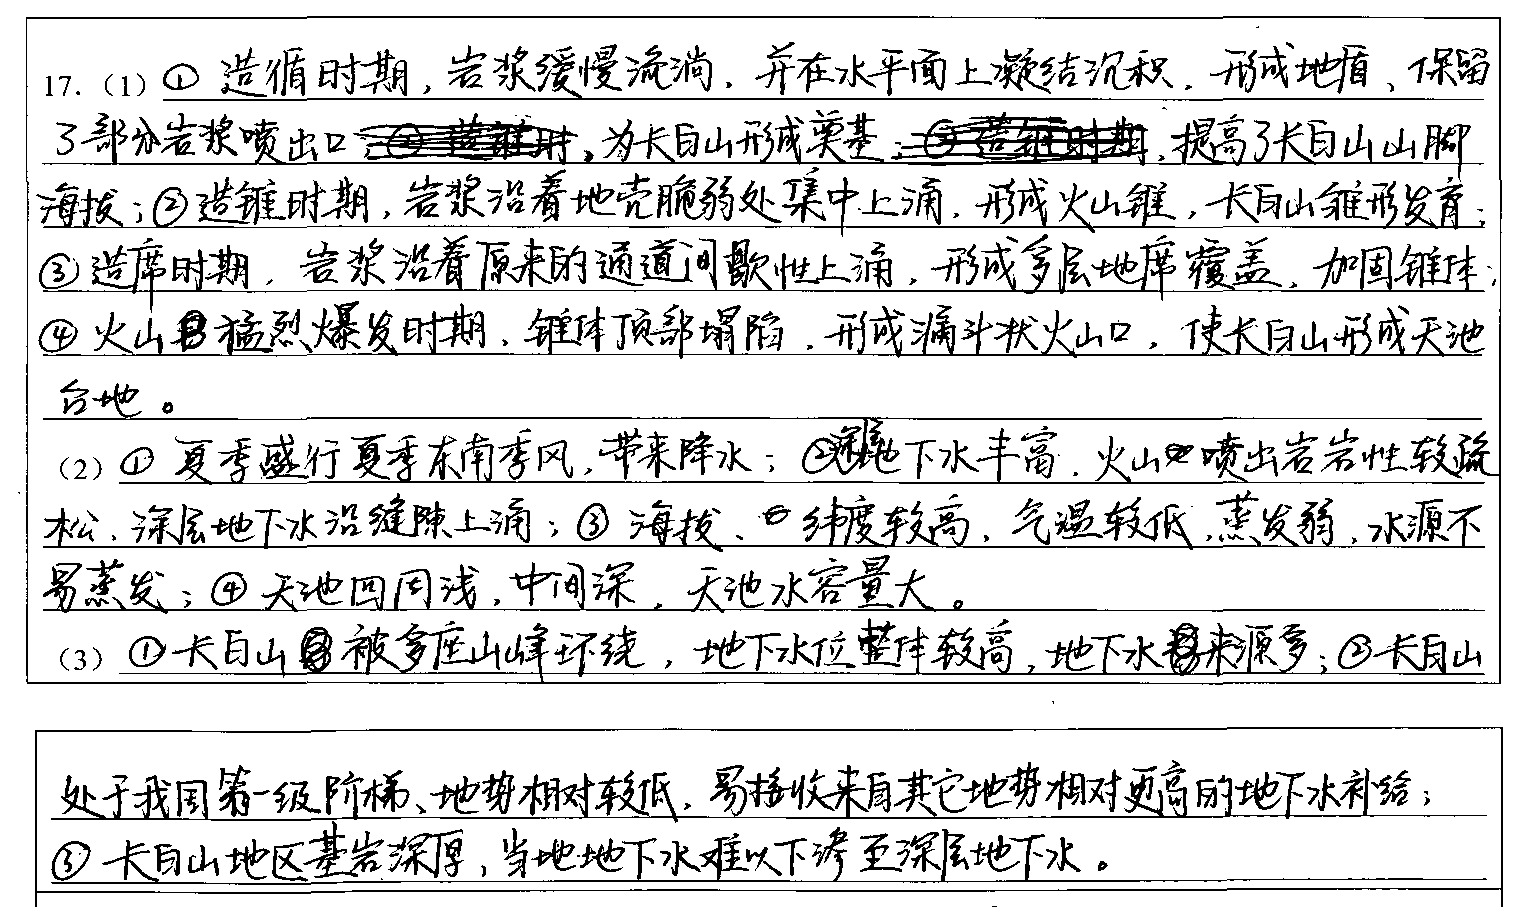 17.（1）① 造循时期，岩浆缓慢流淌，并在水平面上凝结沉积，形成地盾、保留
了部分岩浆喷出口，为长白山形成奠基；提高了长白山山脚
海拔；②造锥时期，岩浆沿着地壳脆弱处集中上涌，形成火山锥，长白山雏形发育；
③造席时期，岩浆沿着原来的通道间歇性上涌，形成多层地席覆盖，加固锥体；
④ 火山猛烈爆发时期，锥体顶部塌陷，形成漏斗状火山口，使长白山形成天池
台地。
（2）① 夏季盛行夏季东南季风，带来降水；②地下水丰富，火山喷出岩岩性较疏
松，深层地下水沿缝隙上涌；③ 海拔、纬度较高，气温较低，蒸发弱，水源不
易蒸发；④ 天池四周浅，中间深，天池水容量大。
（3）①长白山被多座山峰环绕，地下水位整体较高，地下水来源多；②长白山
处于我国第一级阶梯、地势相对较低，易接收来自其它地势相对更高的地下水补给；
③ 长白山地区基岩深厚，当地地下水难以下渗至深层地下水。